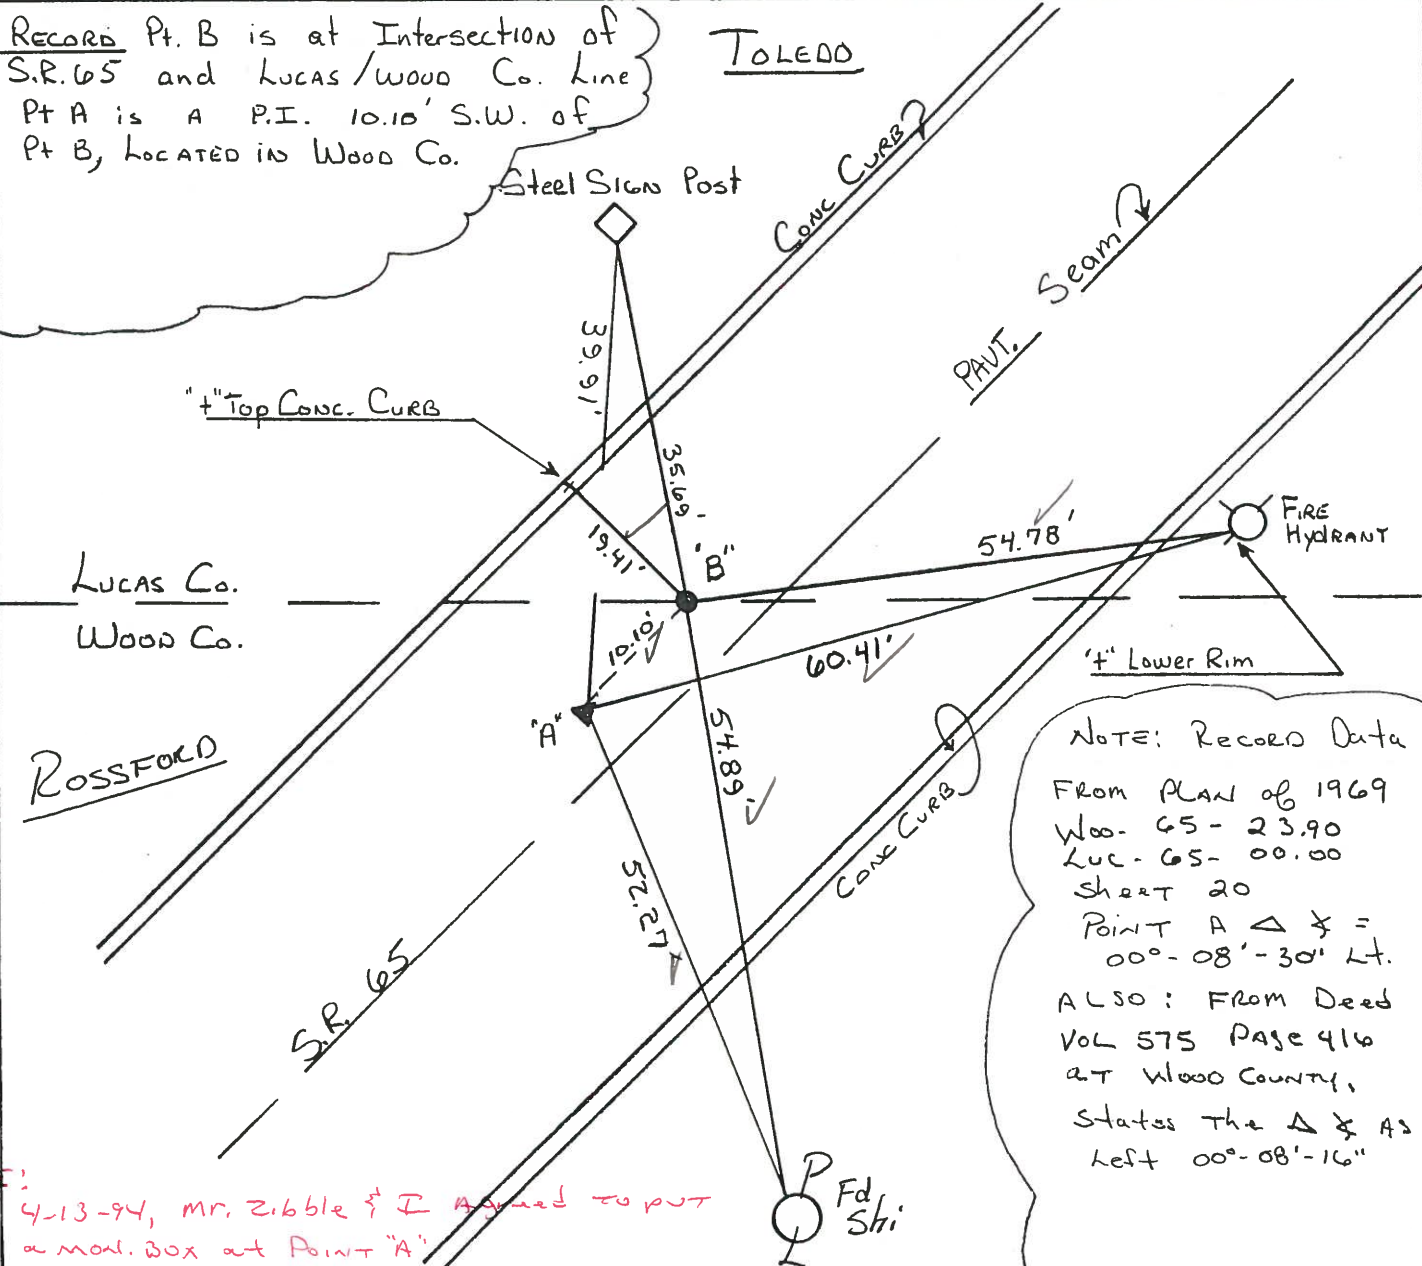 RECORD Pt. B is at Intersection of
S.R. 65 and Lucas/Wood Co. Line
Pt A is A P.I. 10.10' S.W. of
Pt B, Located in Wood Co.
TOLEDO
Steel Sign Post
Conc Curb
Seam
PAVT.
39.91'
"+" Top Conc. Curb
35.69'
19.41'
"B"
54.78'
Fire
Hydrant
Lucas Co.
Wood Co.
10.10'
60.41'
"+" Lower Rim
"A"
ROSSFORD
54.89'
52.27'
Conc Curb
S.R. 65
NOTE: Record Data
From PLAN of 1969
Woo- 65- 23.90
Luc- 65- 00.00
Sheet 20
Point A Δ ∡ =
00°- 08'- 30" Lt.
ALSO: From Deed
Vol 575 Page 416
at Wood County,
States The Δ ∡ As
Left 00°-08'-16"
P
Fd
Shi
4-13-94, Mr. Zibble & I Agreed to put
a mon. Box at Point "A"